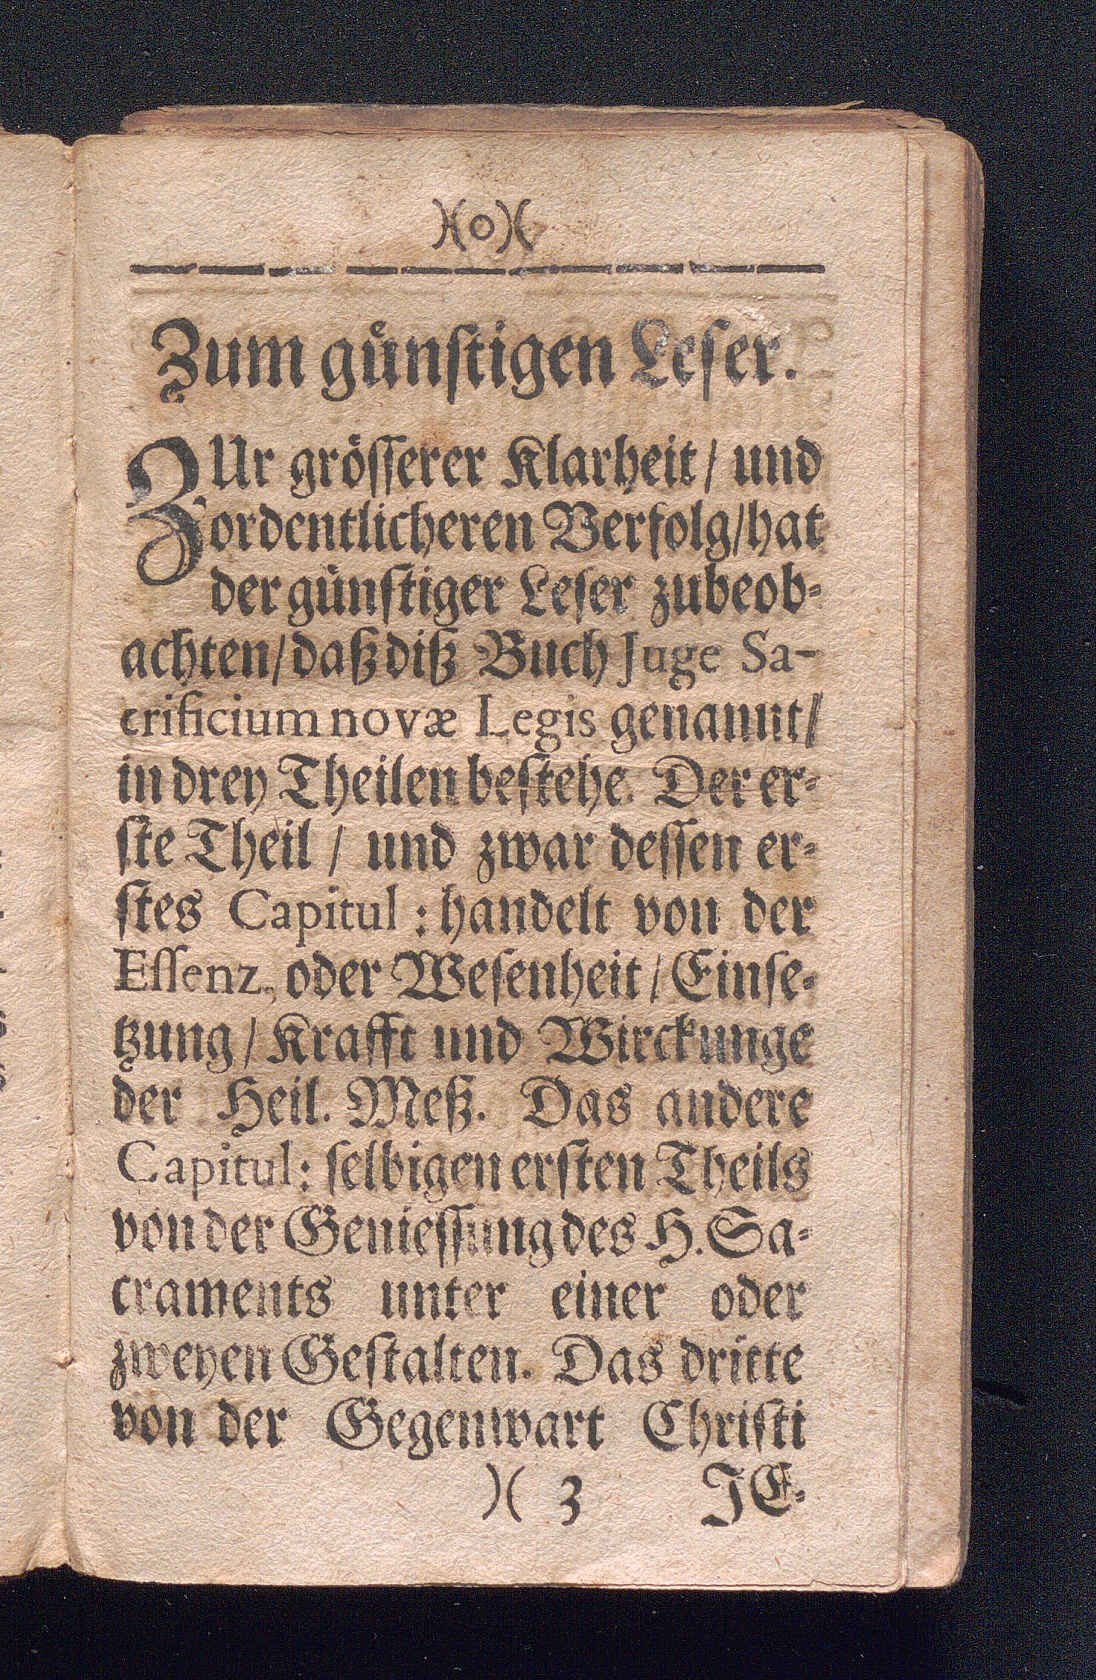 )(o)(
Zum guͤnſtigen Leſer.
ZUr groͤſſerer Klarheit / und
ordentlicheren Verfolg/hat
der guͤnſtiger Leſer zubeob-
achten/daß diß Buch Juge Sa-
crificium novæ Legis genannt/
in drey Theilen beſtehe. Der er-
ſte Theil / und zwar deſſen er-
ſtes Capitul : handelt von der
Eſſenz, oder Weſenheit / Einſe-
tzung / Krafft und Wirckunge
der Heil. Meß. Das andere
Capitul: ſelbigen erſten Theils
von der Genieſſung des H. Sa-
craments unter einer oder
zweyen Geſtalten. Das dritte
von der Gegenwart Chriſti
)( 3 JE-